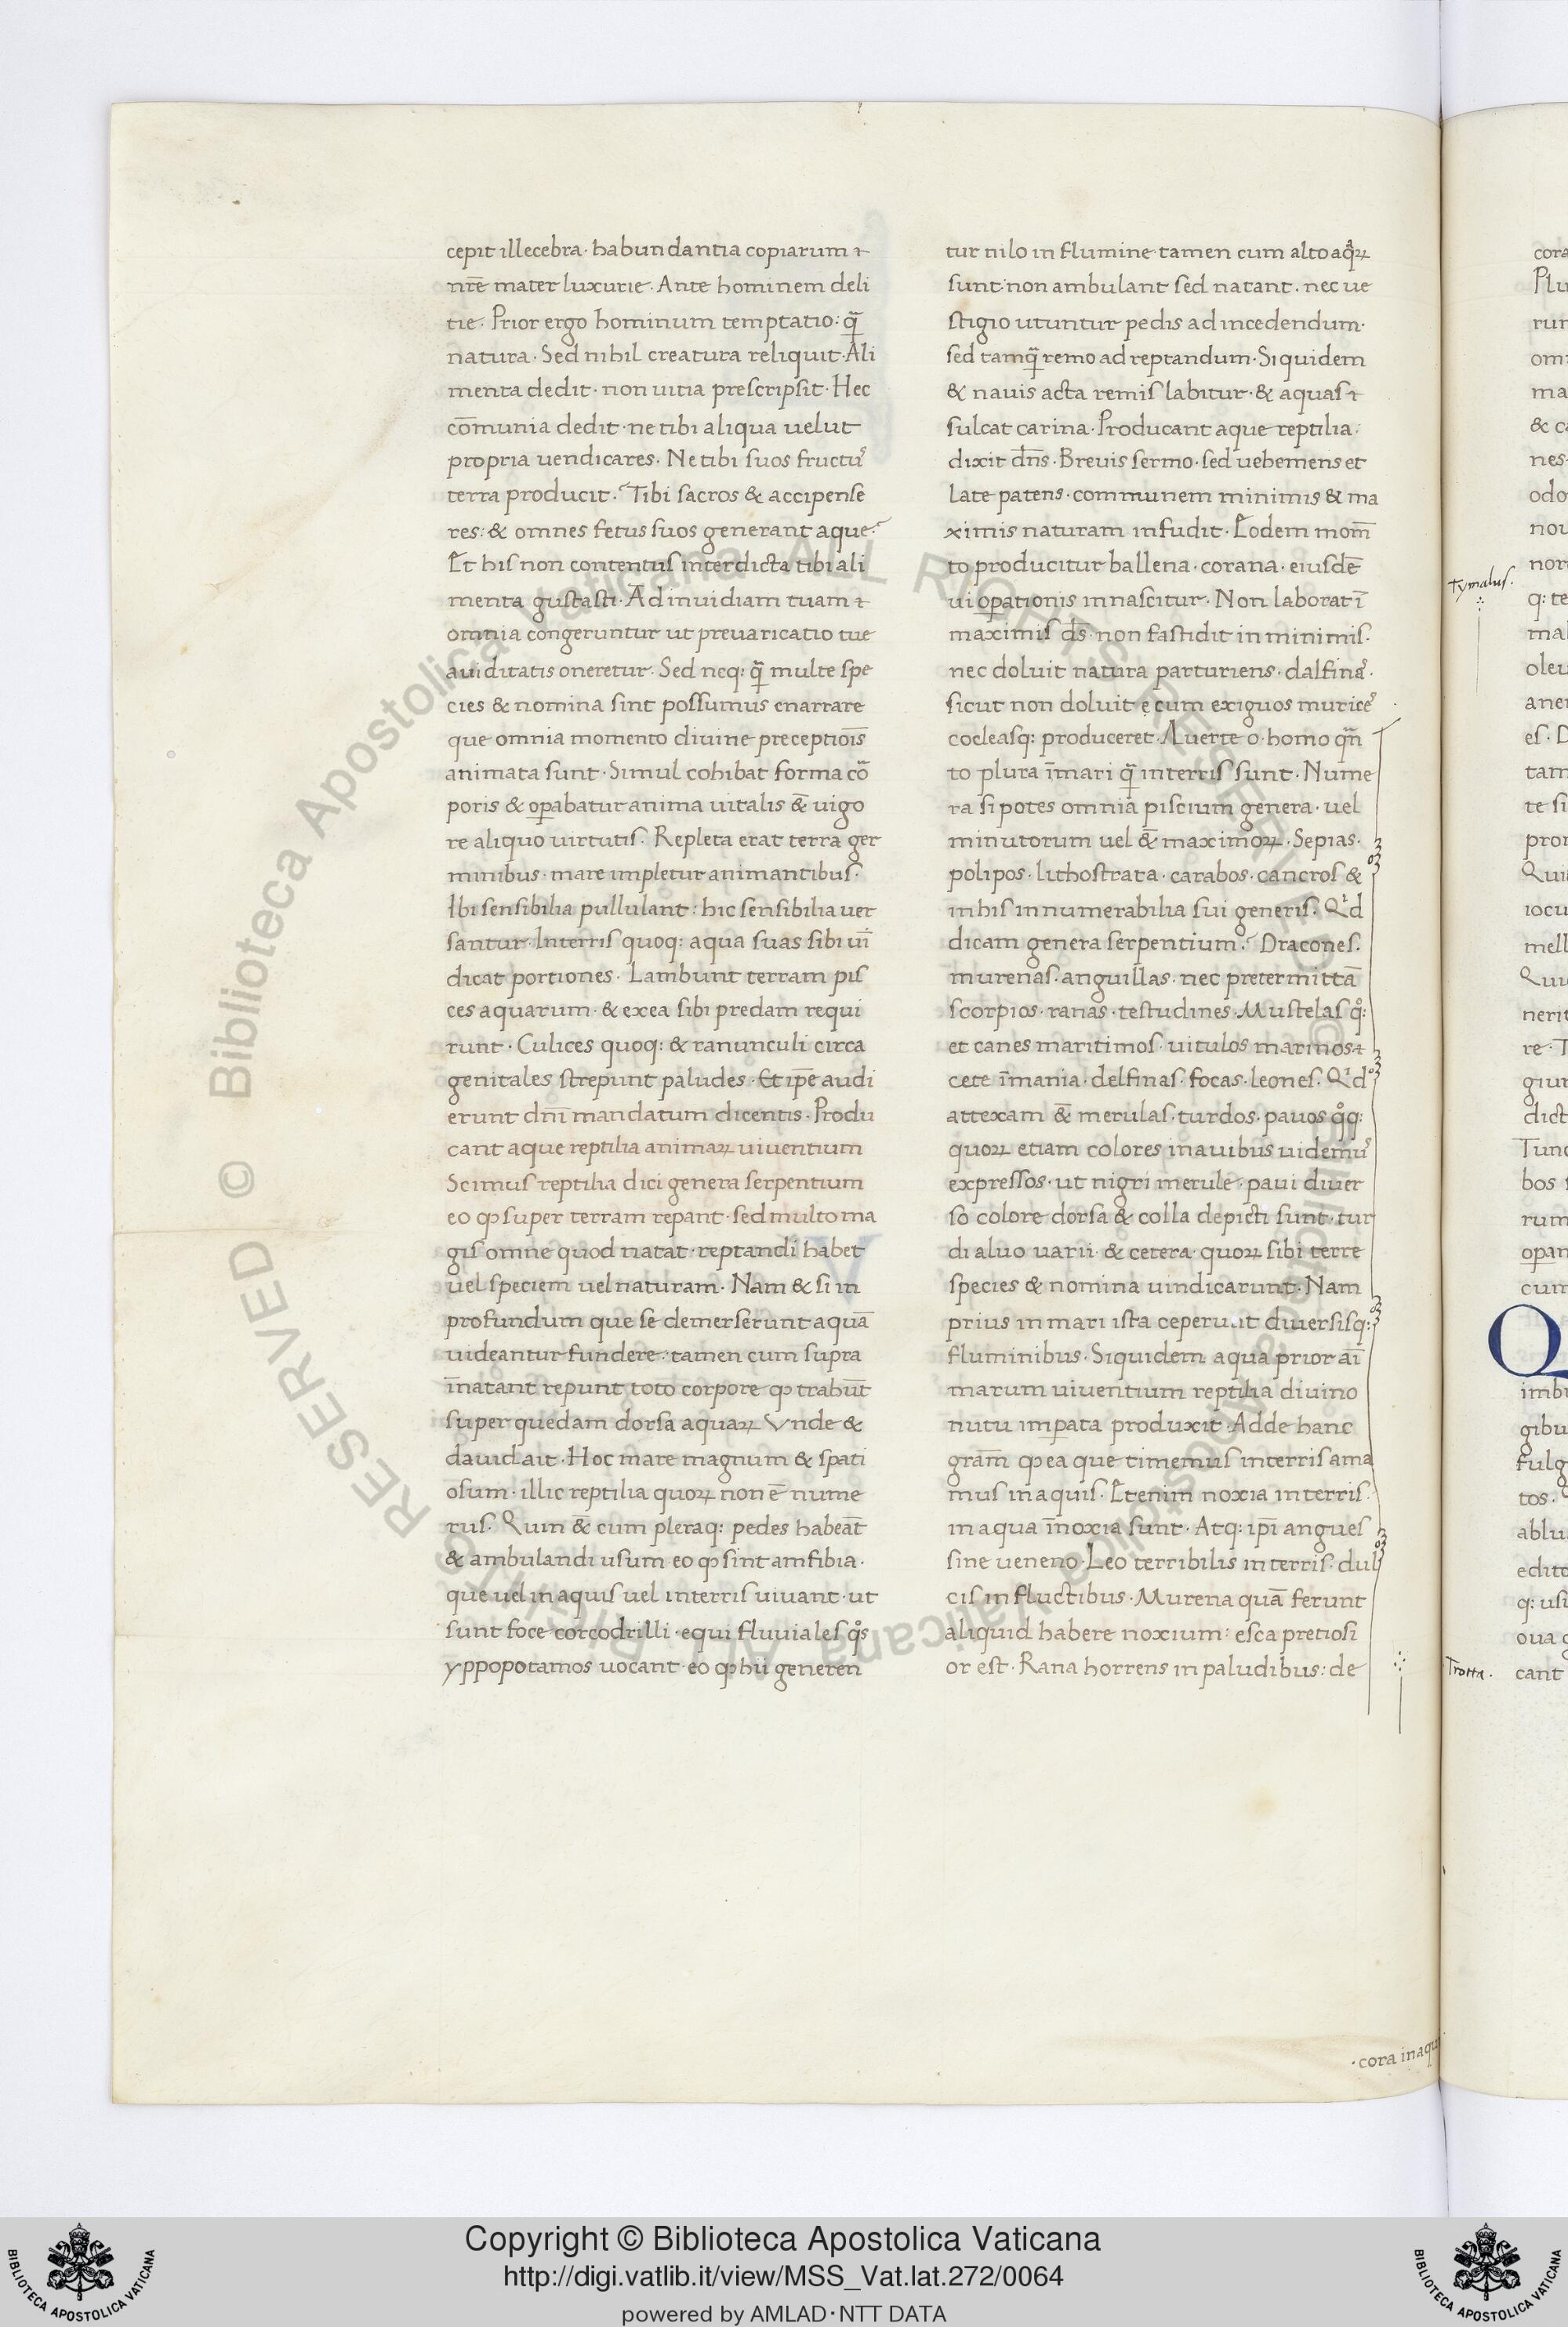 cepit illecebra · habundantia copiarum ⁊
nr̄e mater luxurie · Ante hominem deli
tie · Prior ergo hominum temptatio : q̄
natura · Sed nihil creatura reliquit · Ali
menta dedit · non uitia prescripsit · Hec
cōmunia dedit · ne tibi aliqua uelut
propria uendicares · Ne tibi suos fructuꝰ
terra producit · Tibi sacros & accipense
res : & omnes fetus suos generant aque ·
Et his non contentus interdicta tibi ali
menta gustasti · Ad inuidiam tuam ⁊
omnia congeruntur ut preuaricatio tue
auiditatis oneretur · Sed neq: q̄ multe spe
cies & nomina sint possumus enarrare
que omnia momento diuine preceptiois̄
animata sunt · Simul cohibat forma cō
poris & oꝑabatur anima uitalis &̄ uigo
re aliquo uirtutis · Repleta erat terra ger
minibus · mare impletur animantibus ·
Ibi sensibilia pullulant : hic sensibilia uer
santur · In terris quoq: aqua suas sibi uī
dicat portiones · Lambunt terram pis
ces aquarum · & ex ea sibi predam requi
runt · Culices quoq: & ranunculi circa
genitales strepunt paludes · Et ip̄e audi
erunt dn̄i mandatum dicentis · Produ
cant aque reptilia animaꝝ uiuentium
Scimus reptilia dici genera serpentium
eo ꝙ super terram repant · sed multo ma
gis omne quod natat · reptandi habet
uel speciem uel naturam · Nam & si in
profundum que se demerserunt aquā
uideantur fundere : tamen cum supra
īnatant repunt toto corpore ꝙ trahūt
super quedam dorsa aquaꝝ Vnde &
dauid ait · Hoc mare magnum & spati
osum · illic reptilia quoꝝ non ē nume
rus · Quin &̄ cum pleraq: pedes habeāt
& ambulandi usum eo ꝙ sint amfibia ·
que uel in aquis uel in terris uiuant · ut
sunt foce corcodrilli · equi fluuiales q̊s
yppopotamos uocant · eo ꝙ hii generen
tur nilo in flumine tamen cum alto aq̄ꝝ
sunt : non ambulant sed natant · nec ue
stigio utuntur pedis ad incedendum ·
sed tamq̄ remo ad reptandum · Siquidem
& nauis acta remis labitur · & aquas ⁊
sulcat carina · Producant aque reptilia :
dixit dn̄s · Breuis sermo · sed uehemens et
late patens · communem minimis & ma
ximis naturam infudit · Eodem mom̄
to producitur ballena · corana · eiusdē
ui oꝑationis innascitur · Non laborat ī
maximis ds̄ · non fastidit in minimis ·
nec doluit natura parturiens · dalfinaꝰ ·
sicut non doluit e cum exiguos muriceꝰ
cocleasq: produceret · Auerte o · homo qn̄
to plura ī mari q̄ in terris sunt · Nume
ra si potes omnia piscium genera · uel
minutorum uel &̄ maximoꝝ · Sepias ·
polipos · lithostrata · carabos · cancros &
in his innumerabilia sui generis · Qͥd
dicam genera serpentium · Dracones ·
murenas · anguillas · nec pretermittā
scorpios · ranas · testudines · Mustelas q̊:
et canes maritimos · uitulos marinos ⁊
cete īmania · delfinas · focas · leones · Qͥd
attexam &̄ merulas · turdos · pauos q̊q:
quoꝝ etiam colores in auibus uidemuꝰ
expressos · ut nigri merule · paui diuer
so colore dorsa & colla depicti sunt · tur
di aluo uarii · & cetera · quoꝝ sibi terre
species & nomina uindicarunt · Nam
prius in mari ista ceperunt diuersisq:
fluminibus · Siquidem aqua prior aī
marum uiuentium reptilia diuino
nutu imꝑata produxit · Adde hanc
grām ꝙ ea que timemus in terris ama
mus in aquis · Etenim noxia in terris ·
in aqua īnoxia sunt · Atq: ip̄i angues
sine ueneno · Leo terribilis in terris · dul
cis in fluctibus · Murena quā ferunt
aliquid habere noxium : esca pretiosi
or est · Rana horrens in paludibus : de
· cora in aqu
tymalus ·
Trotta ·
Q
© Biblioteca Apostolica Vaticana ALL RIGHTS RESERVED
Copyright © Biblioteca Apostolica Vaticana
http://digi.vatlib.it/view/MSS_Vat.lat.272/0064
powered by AMLAD · NTT DATA
BIBLIOTECA APOSTOLICA VATICANA
BIBLIOTECA APOSTOLICA VATICANA